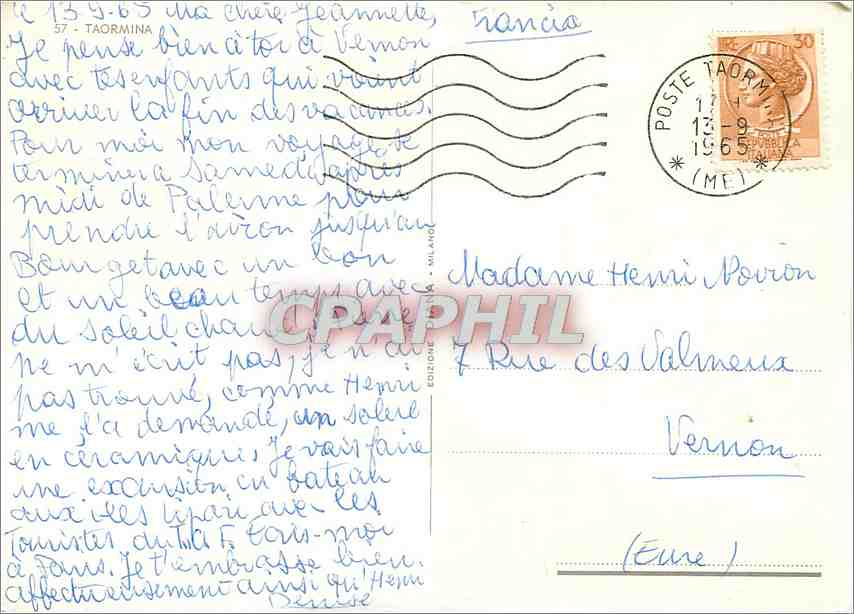 le 13-9-65 Ma chère Jeannette,
57 - TAORMINA
Je pense bien à toi à Vernon
avec tes enfants qui voient
arriver la fin des vacances.
Pour moi mon voyage se
terminera samedi après
midi de Palerme pour
prendre l'avion jusqu'au
Bourget avec un bon
et un beau temps avec
du soleil chaud
ne m'écrit pas, je n'ai
pas trouvé, comme Henri
me l'a demandé, un soleil
en céramique. Je vais faire
une excursion en bateau
aux îles Lipari avec les
Touristes du T.A.F. Ecris-moi
à Paris. Je t'embrasse bien
affectueusement ainsi qu'Henri
Denise
EDIZIONE - MILANO
Francia
30
POSTE TAORMINA
13-9
1965
(ME)
REPUBBLICA
ITALIANA
CPAPHIL
Madame Henri Noiron
7 Rue des Valmeux
Vernon
(Eure)